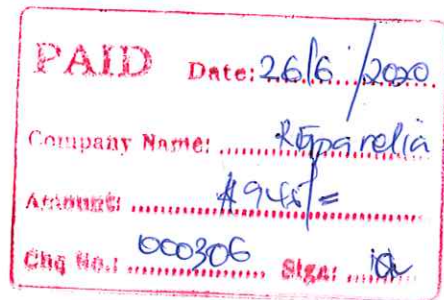 PAID Date: 26/6/2020
Company Name:
Amount: $945/=
Chq No.: 000306 Sign: